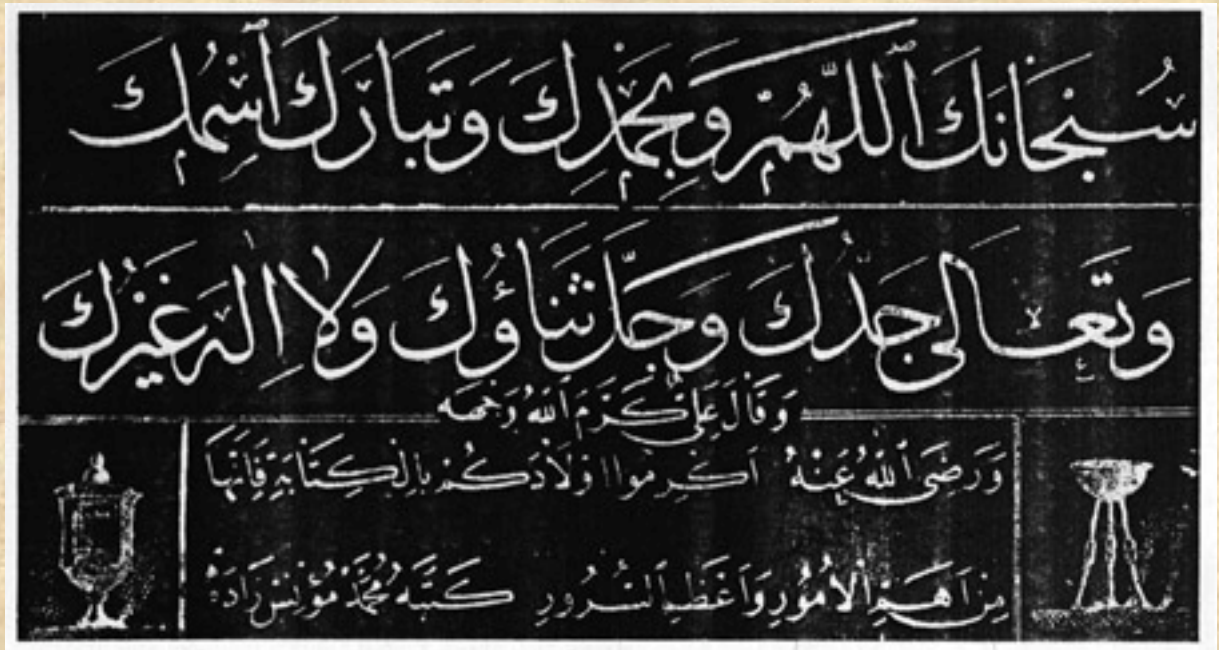 سُبْحَانَكَ ٱللَّهُمَّ وَبِحَمْدِكَ وَتَبَارَكَ ٱسْمُكَ
وَتَعَالَى جَدُّكَ وَجَلَّ ثَنَاؤُكَ وَلَا إِلٰهَ غَيْرُكَ
وَقَالَ عَلِيٌّ كَرَّمَ ٱللهُ وَجْهَه
وَرَضِيَ ٱللهُ عَنْهُ أَكْرِمُوا اَوْلَادَكُمْ بِالْكِتَابَةِ فَاِنَّهَا
مِنْ اَهَمِّ الْأُمُورِ وَاَعْظَمِ السُّرُورِ كَتَبَهُ مُحَمَّدْ مُؤْنِسْ زَادَه